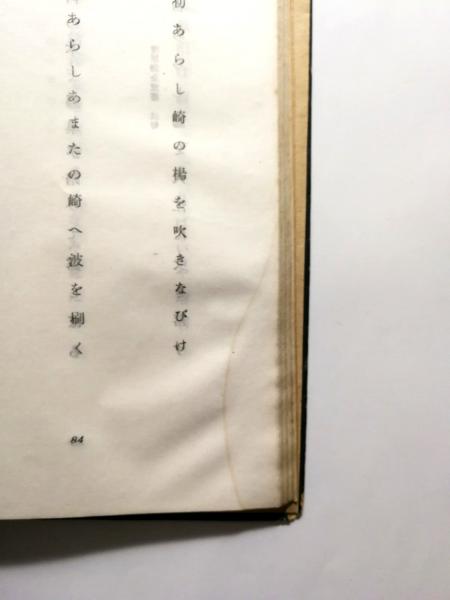 初あらし崎の楊を吹きなびけ
あらしあまたの崎へ波を く
84